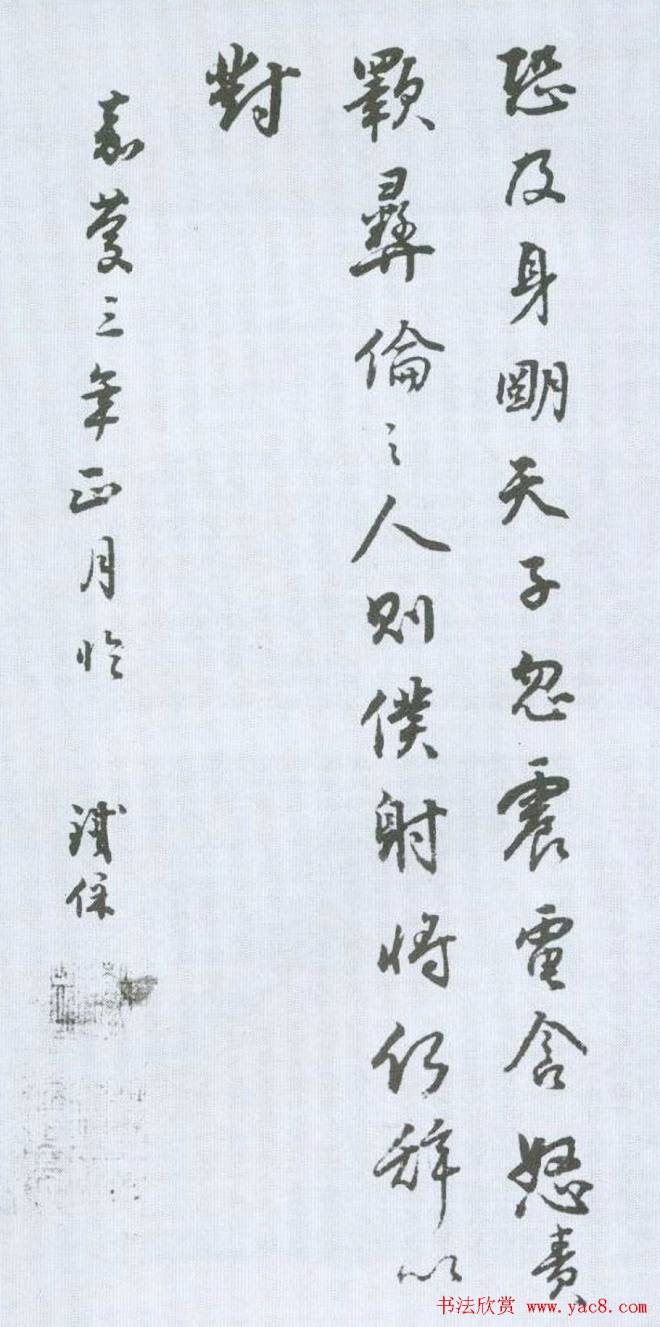 恐及身朙天子忽震電含怒責
斁彝倫之人則僕射將何辭以
對
嘉慶三年正月臨 鐵保
书法欣赏 www.yac8.com